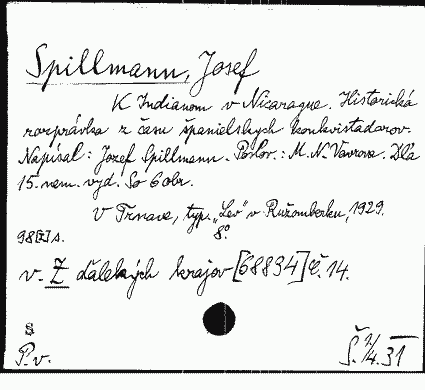 Spillmann, Josef
K Indianom v Nicarague. Historická
rozprávka z času španielskych konkvistadorov.
Napísal: Jozef Spillmann. Poslov.: M. N. Vavrova. Dľa
15. nem. vyd. So 6 obr.
V Trnave, typ. „Lev" v Ružomberku, 1929.
8°.
98 [2] s.
v. Z ďalekých krajov [68834] č. 14.
8
P. v.
Š. 2/4. 31